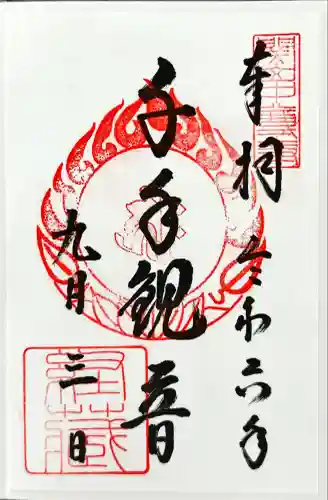 奉拝
令和六年
千手観音
九月三日